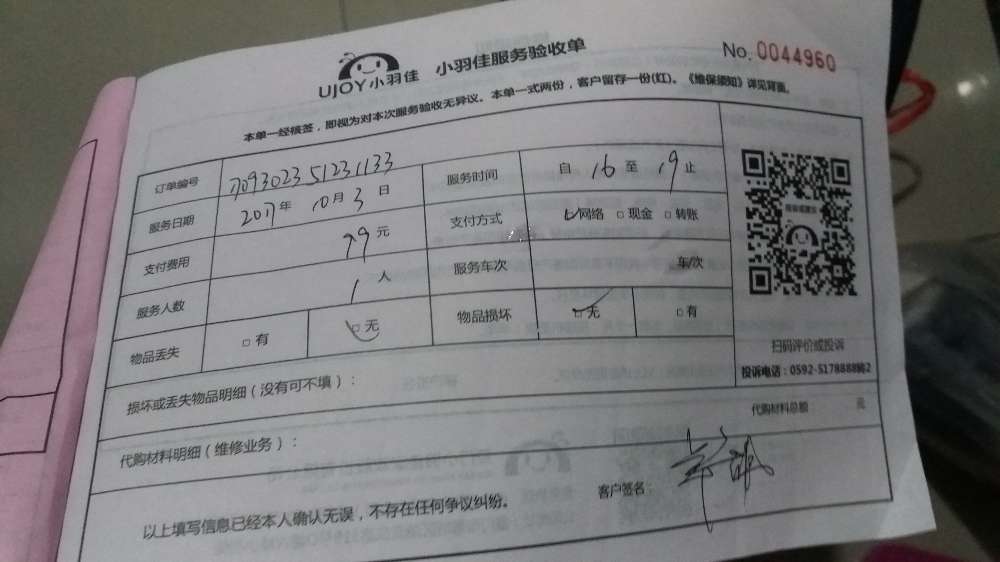 UJOY小羽佳 小羽佳服务验收单
No. 0044960
本单一经核签，即视为对本次服务验收无异议。本单一式两份，客户留存一份(红)。《维保须知》详见背面。
订单编号 709302351231133 服务时间 自 16 至 19 止
服务日期 2017年 10月 3日 支付方式 网络 □ 现金 □ 转账
支付费用 79元 服务车次 车/次
服务人数 1人 物品损坏 □ 无 □ 有
物品丢失 □ 有 □ 无
扫码评价或投诉
投诉电话：0592-5178888转2
损坏或丢失物品明细（没有可不填）：
代购材料明细（维修业务）： 代购材料总额 元
以上填写信息已经本人确认无误，不存在任何争议纠纷。 客户签名：